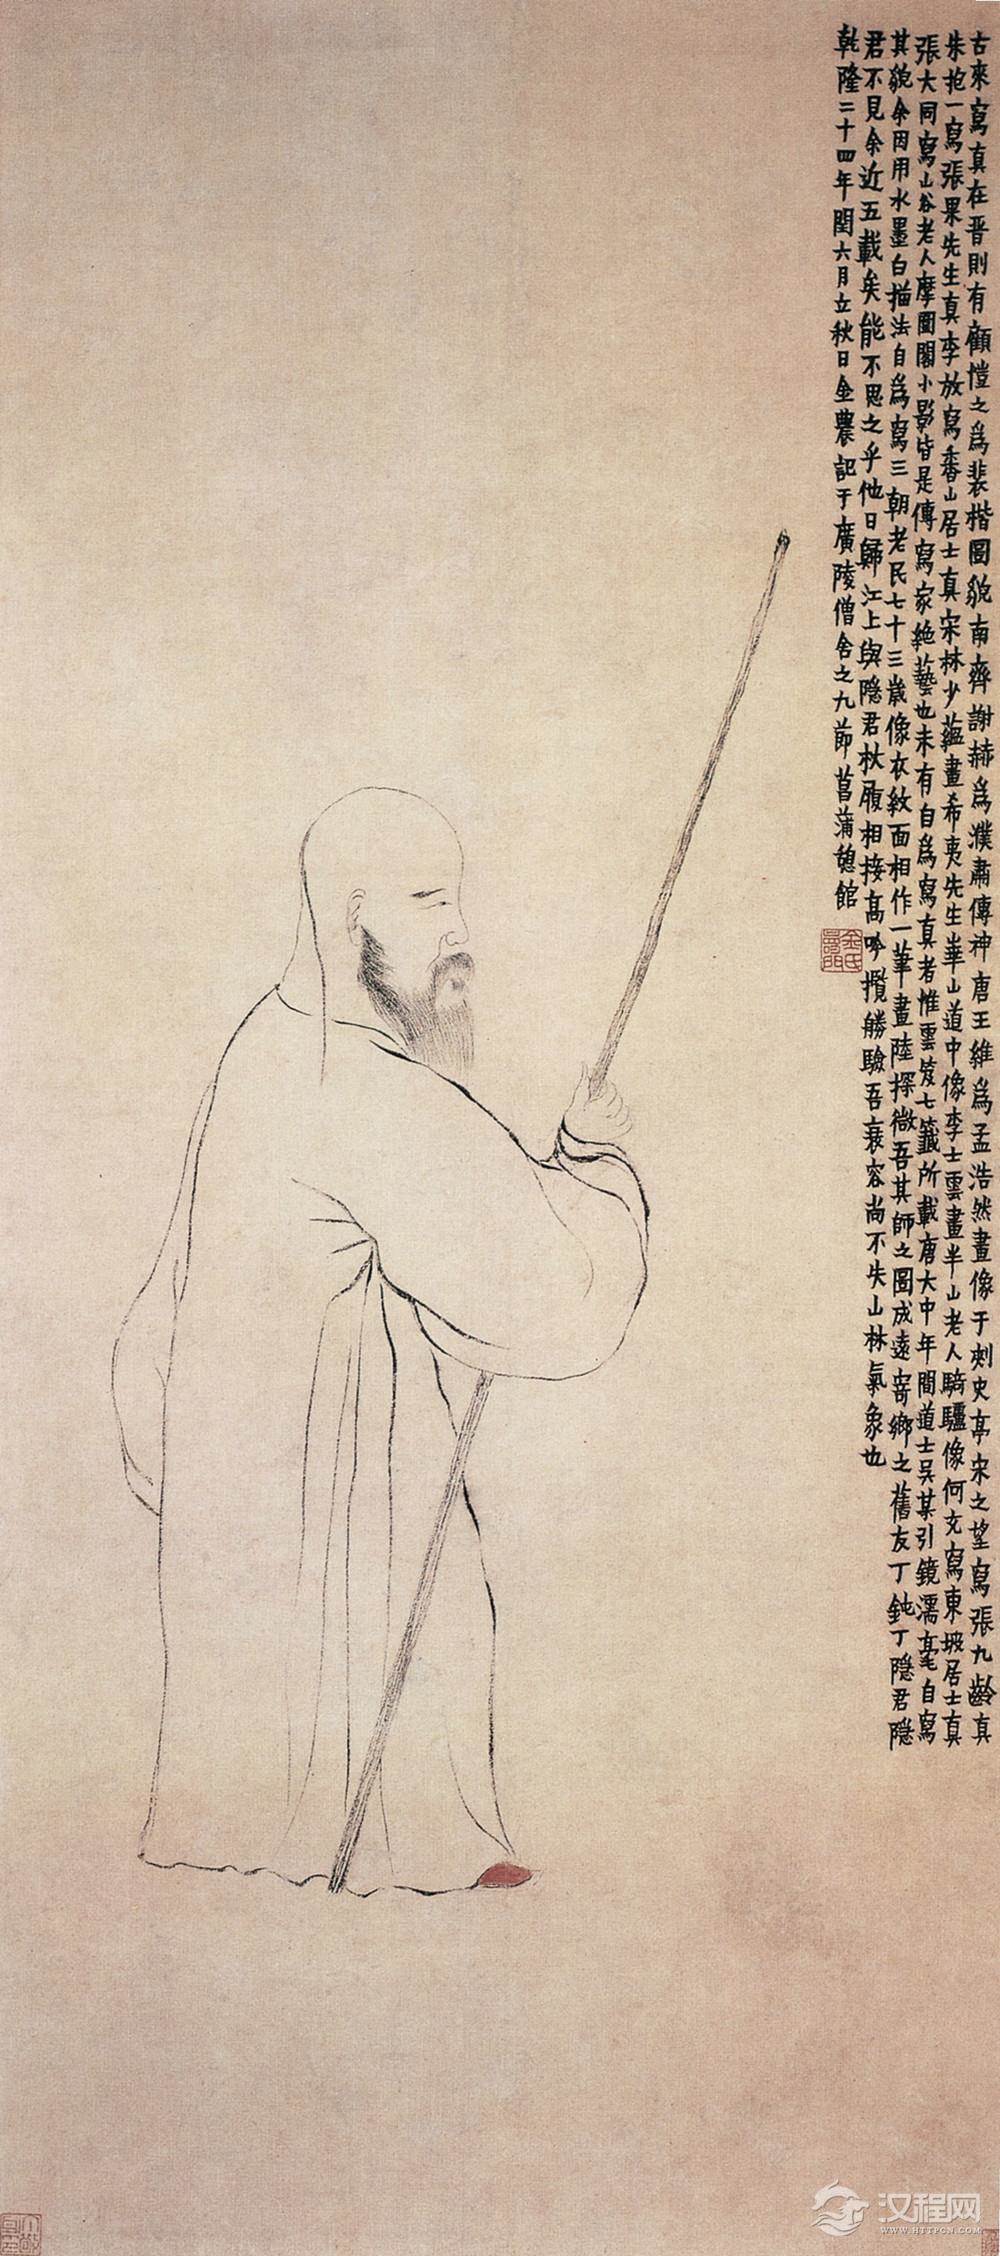 古來寫真在晋則有顧愷之爲裴楷圖貌南齊謝赫爲濮肅傳神唐王維爲孟浩然畫像于刺史亭宋之望寫張九齡真
朱抱一寫張果先生真李放寫香山居士真宋林少蘊畫希夷先生華山道中像李士雲畫半山老人騎驢像何充寫東坡居士真
張大同寫山谷老人摩圍閣小影皆是傳寫家絶藝也未有自爲寫真者惟雲笈七籤所載唐大中年間道士吴某引鏡濡毫自寫
其貌余因用水墨白描法自爲寫三朝老民七十三歲像衣紋面相作一筆畫陸探微吾其師之圖成遠寄鄉之舊友丁鈍丁隱君隱
君不見余近五載矣能不思之乎他日歸江上與隱君杖履相接高吟攬勝驗吾衰容尚不失山林氣象也
乾隆二十四年閏六月立秋日金農記于廣陵僧舍之九節菖蒲憩館
金氏
汉程网
WWW.HTTPCN.COM